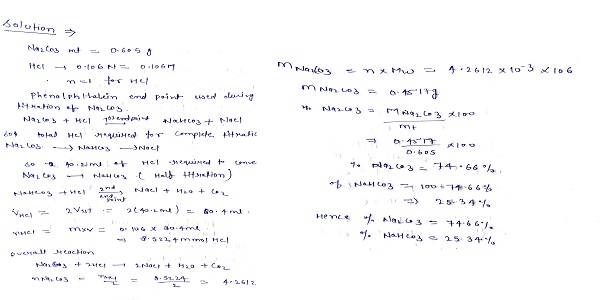 Solution ⇒
Na2CO3 mt = 0.605 g
HCl → 0.106 N = 0.106 M
n=1 for HCl
phenolphthalein end point used during
titration of Na2CO3.
Na2CO3 + HCl → NaHCO3 + NaCl
total HCl required for complete titration
Na2CO3 → NaHCO3 → NaCl
so 40.2ml of HCl required to conve
Na2CO3 → NaHCO3 (Half titration)
NaHCO3 + HCl 2nd end point NaCl + H2O + CO2
VHCl = 2 = 2(40.2ml) = 80.4 ml.
nHCl = M×V = 0.106 × 80.4 ml
= 8.5224 mmol HCl
overall reaction
Na2CO3 + 2HCl → 2NaCl + H2O + CO2
nNa2CO3 = = 8.5224/2 = 4.2612
mNa2CO3 = n × Mw = 4.2612 × 10-3 × 106
mNa2CO3 = 0.4517g
% Na2CO3 = MNa2CO3/mt × 100
⇒ 0.4517/0.605 × 100
% Na2CO3 = 74.66%
% NaHCO3 = 100 - 74.66%
⇒ 25.34%
Hence % Na2CO3 = 74.66%
% NaHCO3 = 25.34%